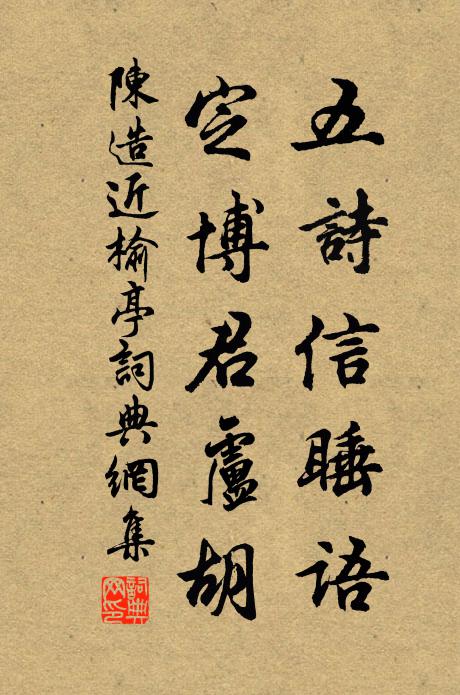 五詩信睡語
定博君盧胡
陳造近榆亭詞典網集
詞典網印